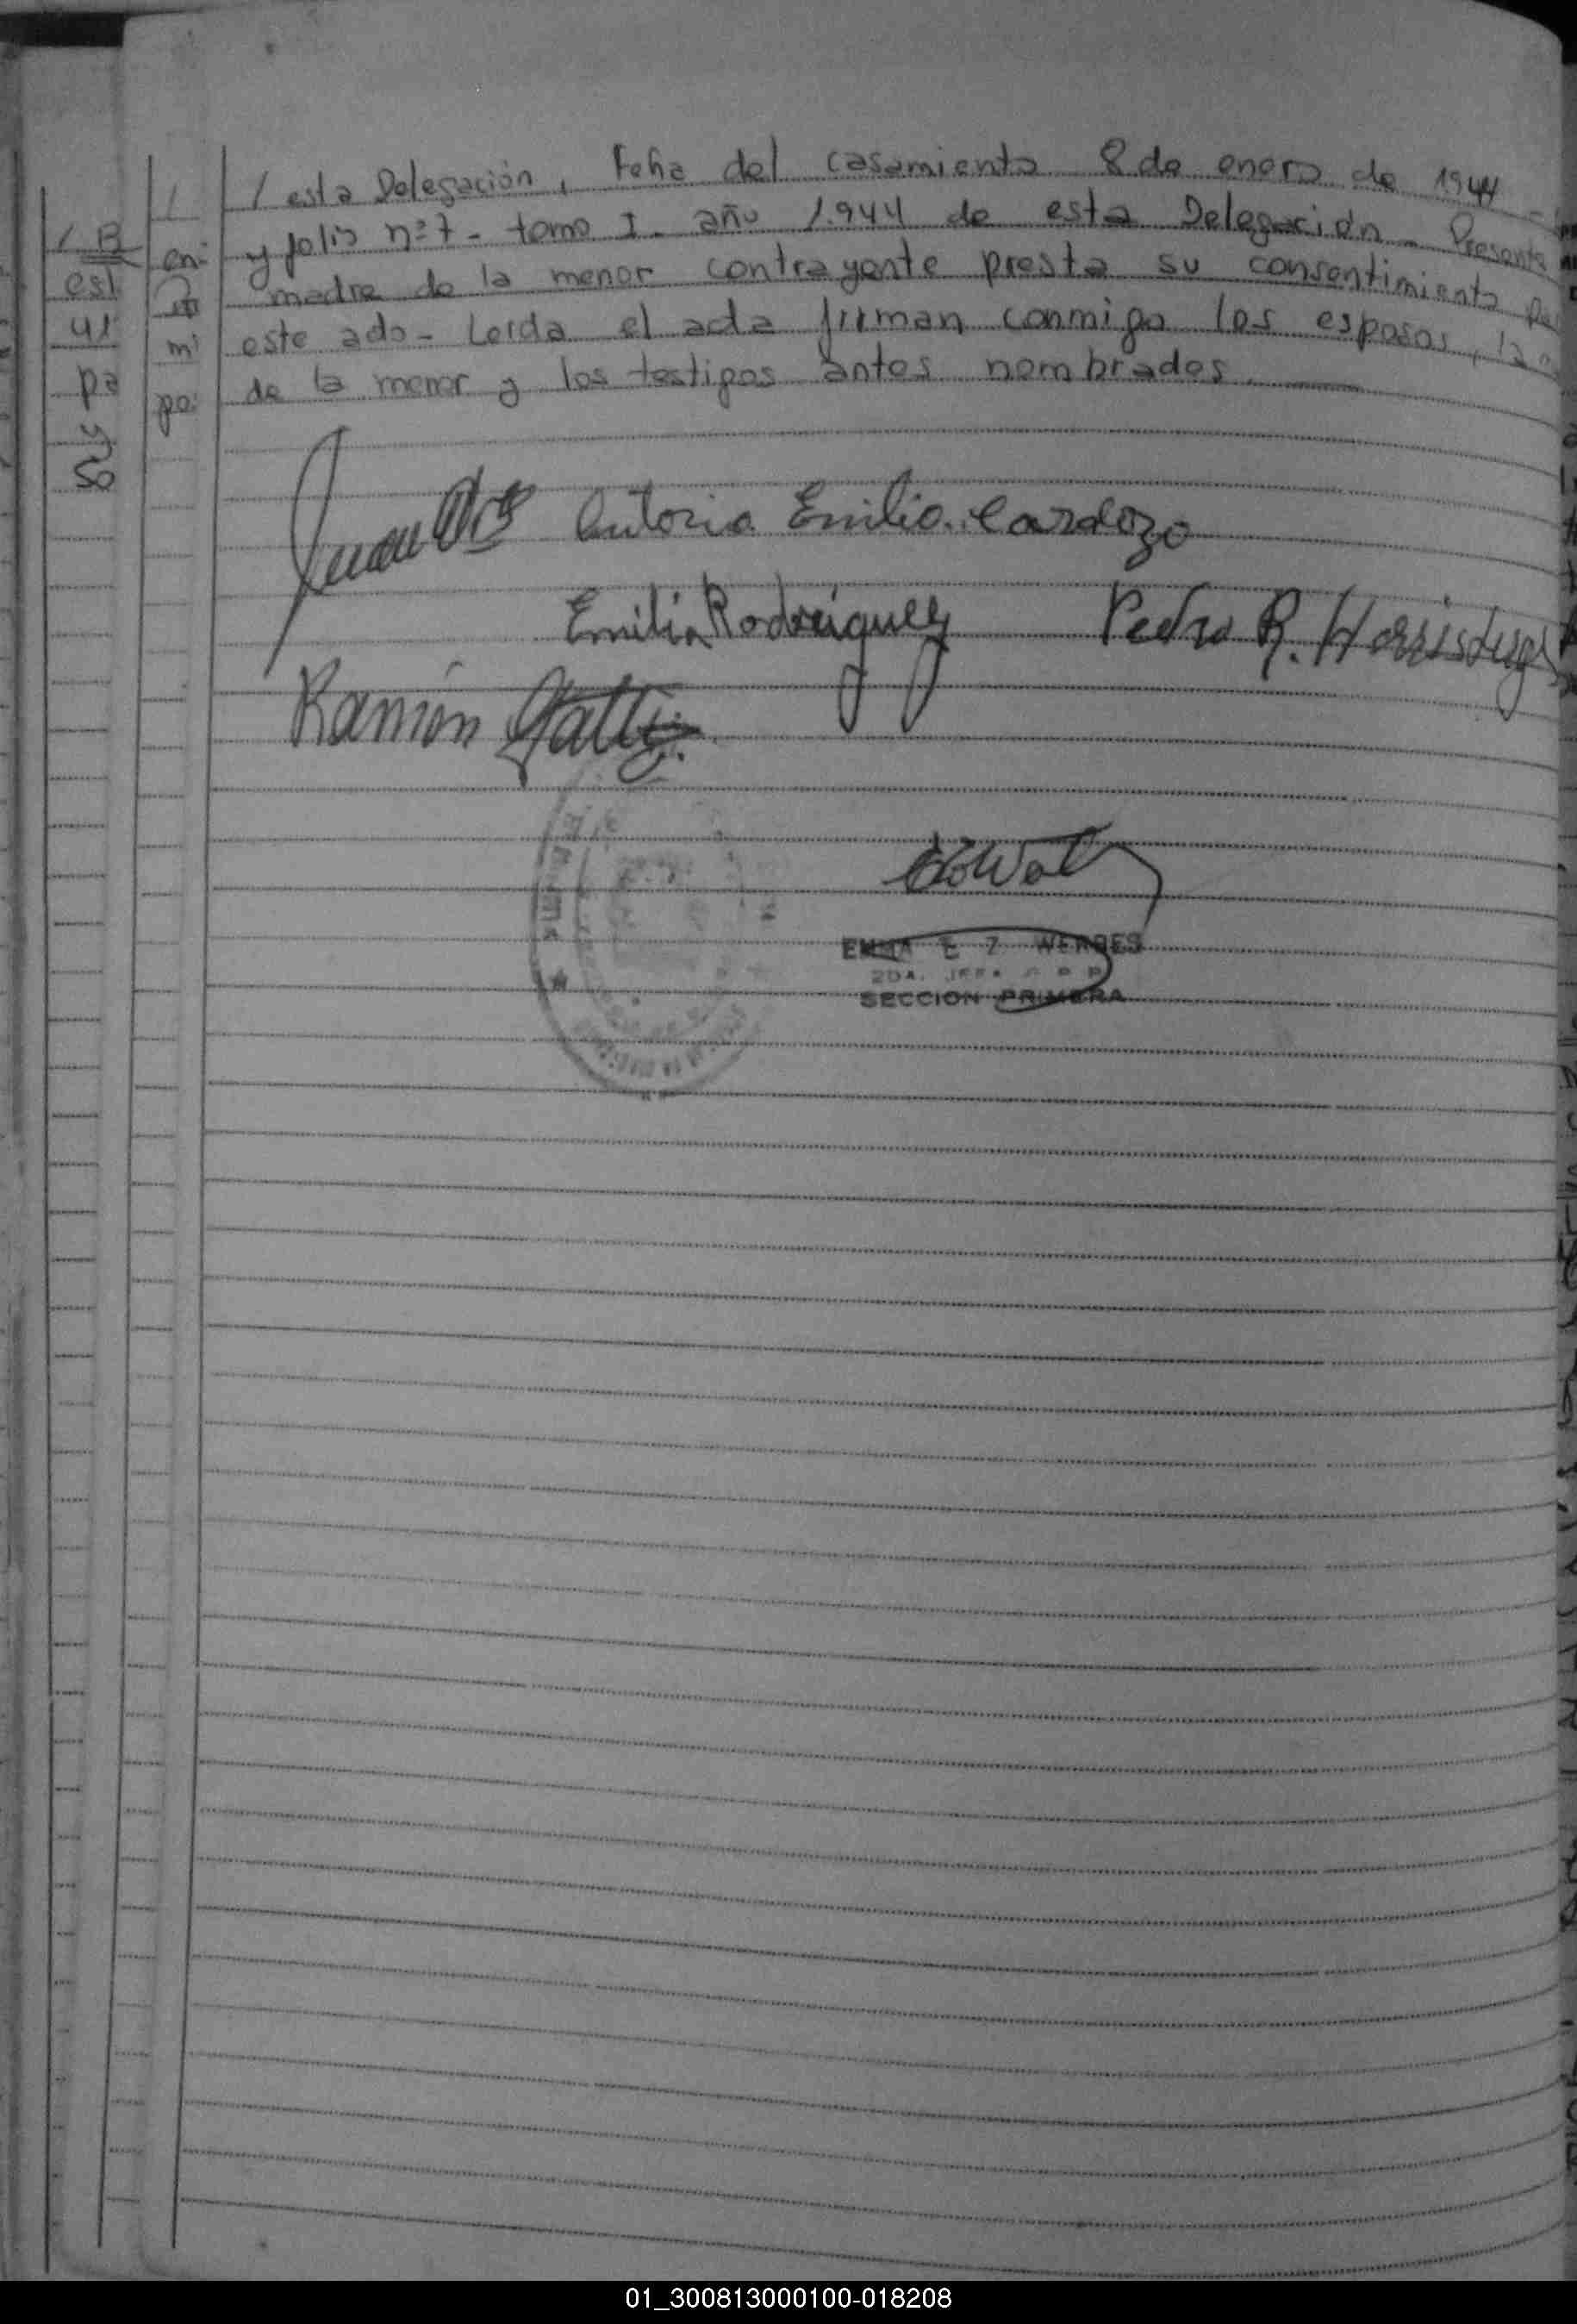 / esta Delegación, Feha del casamiento 8 de enero de 1944
y folio nº 7 - tomo I - año 1.944 de esta Delegación - Presente
madre de la menor contrayente presta su consentimiento
este acto - Leida el acta firman conmigo los esposos, la
de la menor y los testigos antes nombrados.
/ B
est
pa
y
so
/
en
mi
po
Juan
Antonia Emilia Cardozo
Emilia Rodríguez
Pedro R.
Ramón
EMMA E Z
2DA. JEFA
SECCION PRIMERA
01_300813000100-018208